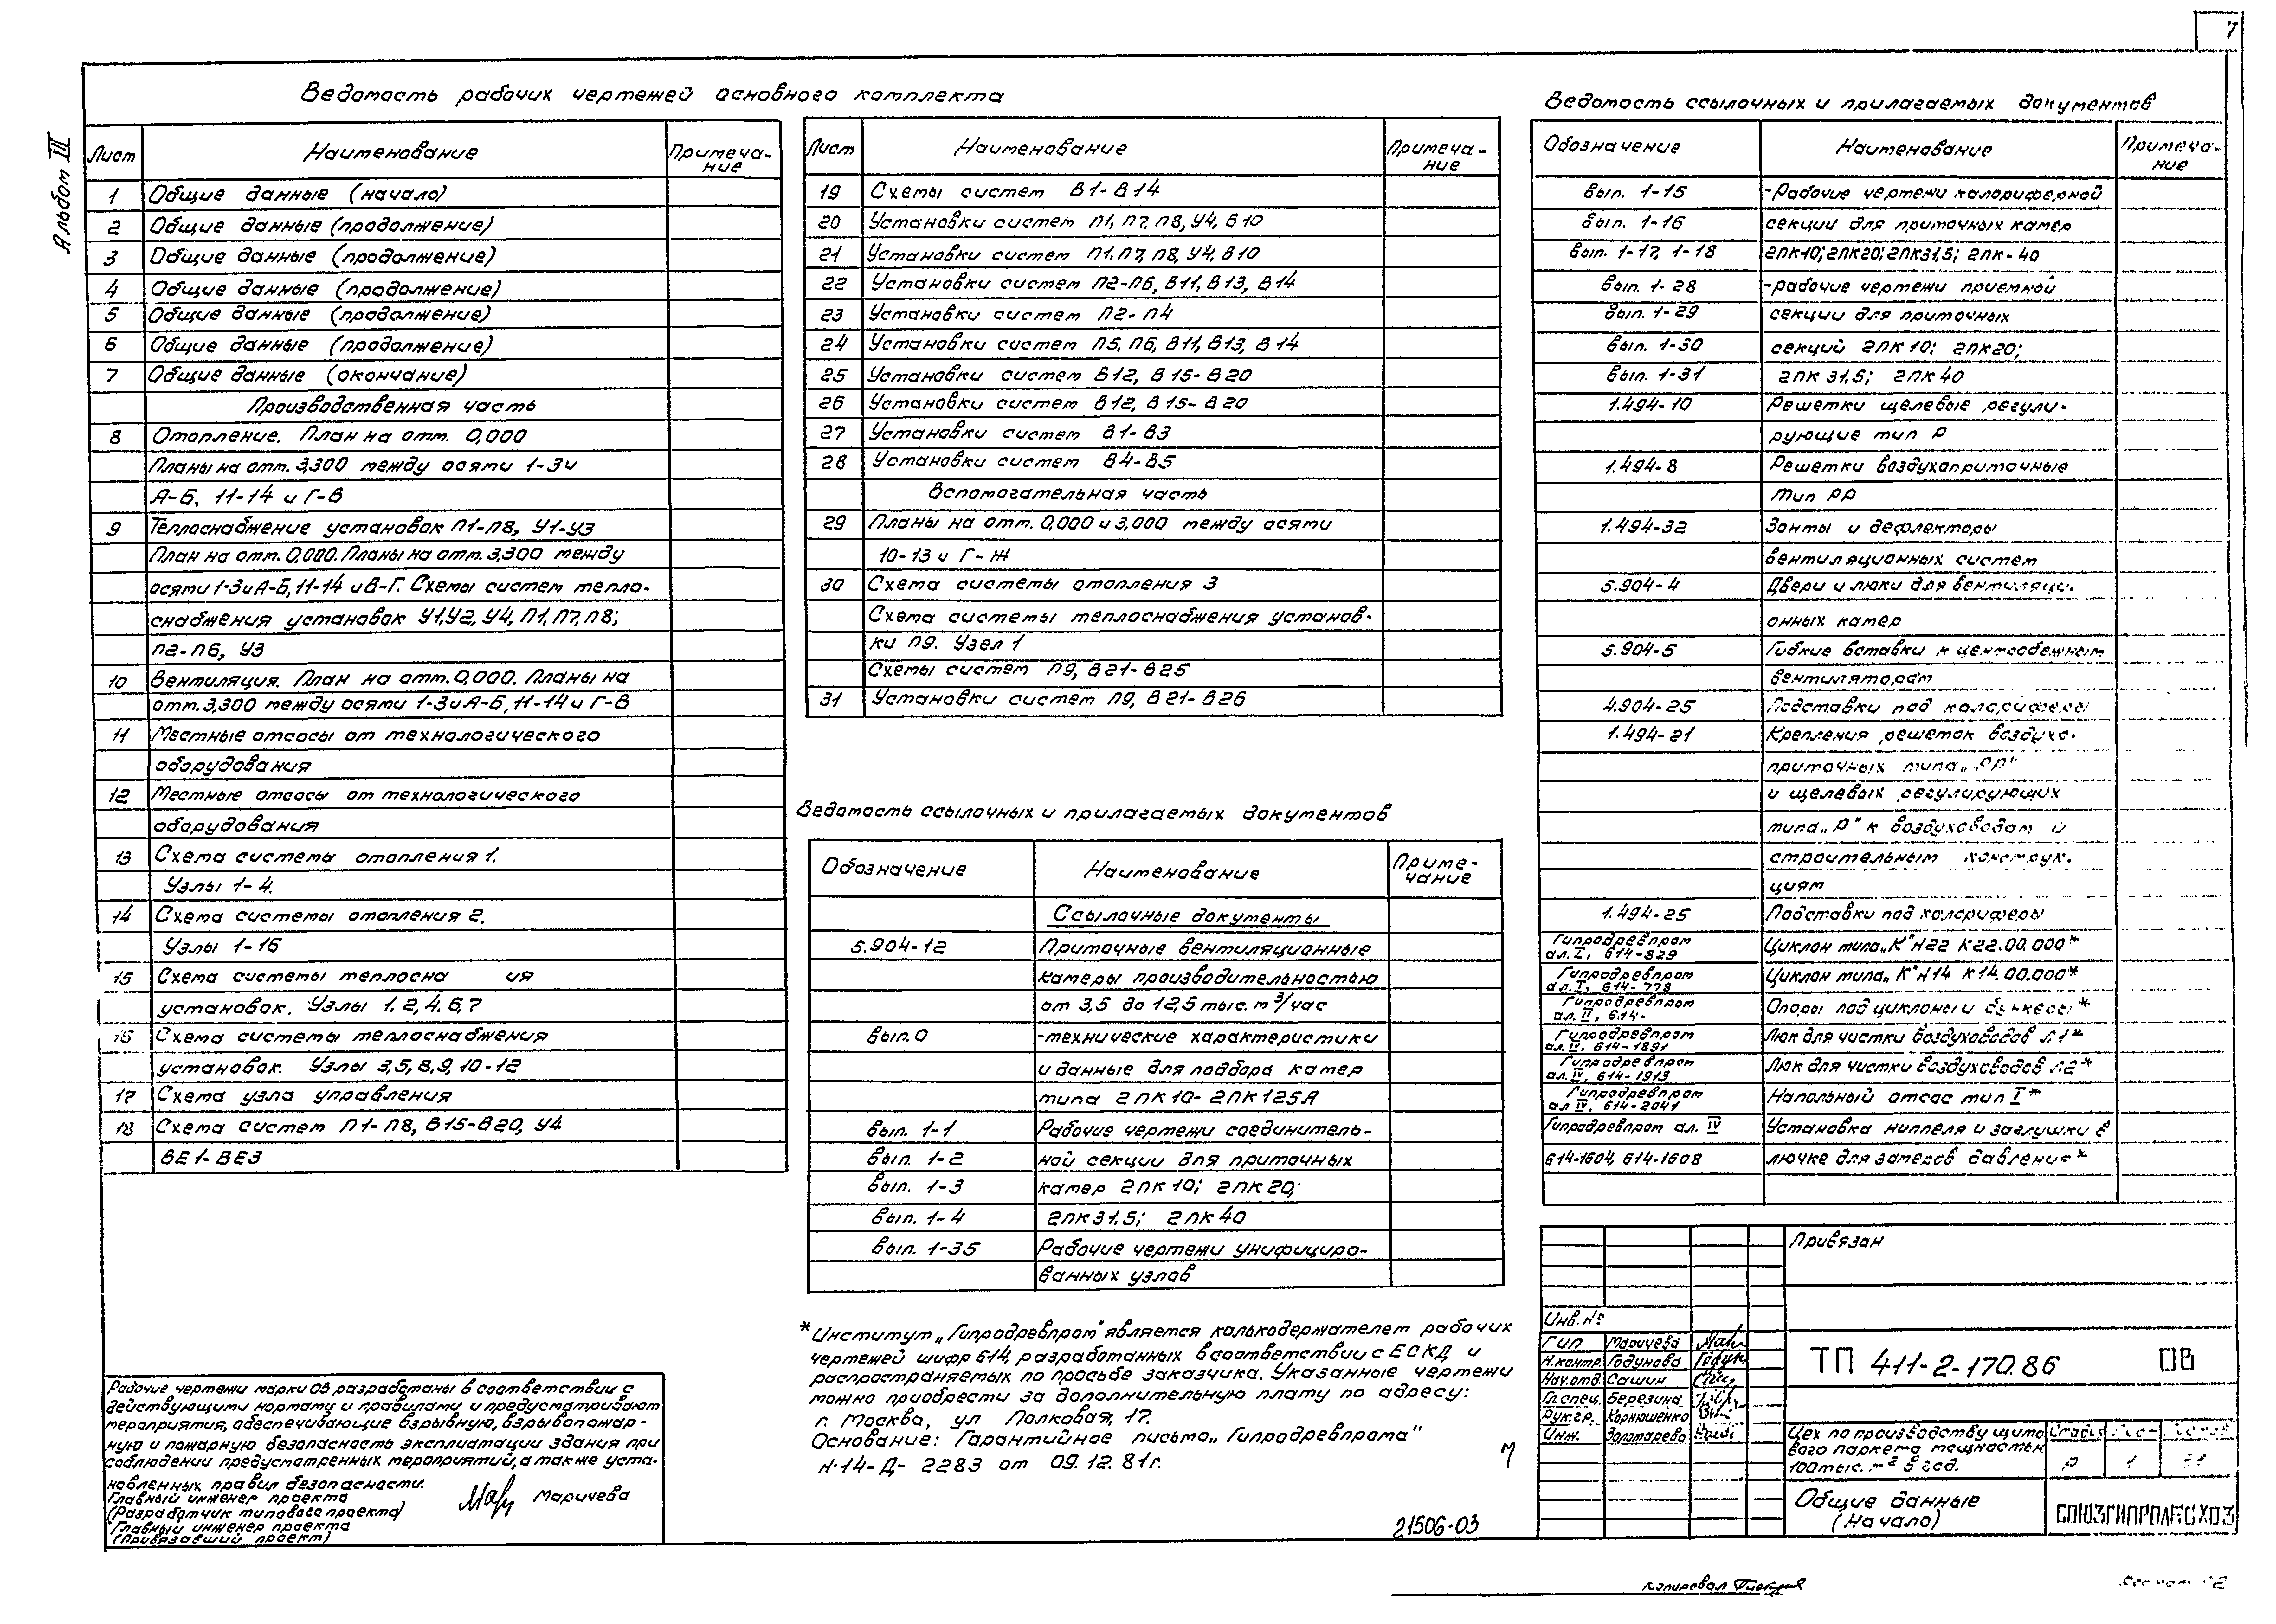 7
Альбом III
Ведомость рабочих чертежей основного комплекта
Лист Наименование Примеча-
ние
1 Общие данные (начало)
2 Общие данные (продолжение)
3 Общие данные (продолжение)
4 Общие данные (продолжение)
5 Общие данные (продолжение)
6 Общие данные (продолжение)
7 Общие данные (окончание)
Производственная часть
8 Отопление. План на отм. 0,000
Планы на отм. 3,300 между осями 1-3 и
А-Б, 11-14 и Г-В
9 Теплоснабжение установок П1-П8, У1-У3
План на отм. 0,000. Планы на отм. 3,300 между
осями 1-3 и А-Б, 11-14 и В-Г. Схемы систем тепло-
снабжения установок У1, У2, У4, П1, П7, П8;
П2-П6, У3
10 Вентиляция. План на отм. 0,000. Планы на
отм. 3,300 между осями 1-3 и А-Б, 11-14 и Г-В
11 Местные отсосы от технологического
оборудования
12 Местные отсосы от технологического
оборудования
13 Схема системы отопления 1.
Узлы 1-4.
14 Схема системы отопления 2.
Узлы 1-16
15 Схема системы теплосна ия
установок. Узлы 1, 2, 4, 6, 7
16 Схема системы теплоснабжения
установок. Узлы 3, 5, 8, 9, 10-12
17 Схема узла управления
18 Схема систем П1-П8, В15-В20, У4
ВЕ1-ВЕ3
Лист Наименование Примеча-
ние
19 Схемы систем В1-В14
20 Установки систем П1, П7, П8, У4, В10
21 Установки систем П1, П7, П8, У4, В10
22 Установки систем П2-П6, В11, В13, В14
23 Установки систем П2-П4
24 Установки систем П5, П6, В11, В13, В14
25 Установки систем В12, В15-В20
26 Установки систем В12, В15-В20
27 Установки систем В1-В3
28 Установки систем В4-В5
Вспомогательная часть
29 Планы на отм. 0,000 и 3,000 между осями
10-13 и Г-Ж
30 Схема системы отопления 3
Схема системы теплоснабжения установ-
ки П9. Узел 1
Схемы систем П9, В21-В25
31 Установки систем П9, В21-В26
Ведомость ссылочных и прилагаемых документов
Обозначение Наименование Приме-
чание
Ссылочные документы
5.904-12 Приточные вентиляционные
камеры производительностью
от 3,5 до 125 тыс. м³/час
вып. 0 -технические характеристики
и данные для подбора камер
типа 2ПК10-2ПК125А
вып. 1-1 Рабочие чертежи соединитель-
вып. 1-2 ной секции для приточных
вып. 1-3 камер 2ПК10; 2ПК20;
вып. 1-4 2ПК31,5; 2ПК40
вып. 1-35 Рабочие чертежи унифициро-
ванных узлов
Ведомость ссылочных и прилагаемых документов
Обозначение Наименование Примеча-
ние
вып. 1-15 -Рабочие чертежи калориферной
вып. 1-16 секции для приточных камер
вып. 1-17, 1-18 2ПК10; 2ПК20; 2ПК31,5; 2ПК-40
вып. 1-28 -рабочие чертежи приемной
вып. 1-29 секции для приточных
вып. 1-30 секций 2ПК10; 2ПК20;
вып. 1-31 2ПК31,5; 2ПК40
1.494-10 Решетки щелевые регули-
рующие тип Р
1.494-8 Решетки воздухоприточные
тип РР
1.494-32 Зонты и дефлекторы
вентиляционных систем
5.904-4 Двери и люки для вентиляци-
онных камер
5.904-5 Гибкие вставки к центробежным
вентиляторам
4.904-25 Подставки под калориферы
1.494-21 Крепления решеток воздухо-
приточных типа „РР"
и щелевых регулирующих
типа „Р" к воздуховодам и
строительным конструк-
циям
1.494-25 Подставки под калориферы
Гипродревпром
ал. I, 614-829 Циклон типа „К" №22 К22.00.000*
Гипродревпром
ал. I, 614-778 Циклон типа „К" №14 К14.00.000*
Гипродревпром
ал. II, 614- Опоры под циклоны и бункеры*
Гипродревпром
ал. IV, 614-1891 Люк для чистки воздуховодов Л1*
Гипродревпром
ал. IV, 614-1913 Люк для чистки воздуховодов Л2*
Гипродревпром
ал IV, 614-2041 Напольный отсос тип I*
Гипродревпром ал. IV Установка ниппеля и заглушки в
614-1604, 614-1608 лючке для замеров давления*
* Институт „Гипродревпром" является калькодержателем рабочих
чертежей шифр 614, разработанных в соответствии с ЕСКД и
распространяемых по просьбе заказчика. Указанные чертежи
можно приобрести за дополнительную плату по адресу:
г. Москва, ул Полковая, 17.
Основание: Гарантийное письмо „Гипродревпрома"
н-14-Д-2283 от 09.12.81г.
21506-03
Рабочие чертежи марки ОВ разработаны в соответствии с
действующими нормами и правилами и предусматривают
мероприятия, обеспечивающие взрывную, взрывопожар-
ную и пожарную безопасность эксплуатации здания при
соблюдении предусмотренных мероприятий, а также уста-
новленных правил безопасности.
Главный инженер проекта
(Разработчик типового проекта) Маричева
Главный инженер проекта
(Привязавший проект)
Привязан
Инв. №
ГИП Маричева
Н.контр. Годунова
Нач.отд. Сашин
Гл.спец. Березина
Рук.гр. Корнюшенко
Инж. Золотарева
ТП 411-2-170.86 ОВ
Цех по производству щито-
вого паркета мощностью
100 тыс. м² в год.
Стадия Лист Листов
Р 1 31
Общие данные
(Начало)
СОЮЗГИПРОЛЕСХОЗ
Копировал
Формат А2